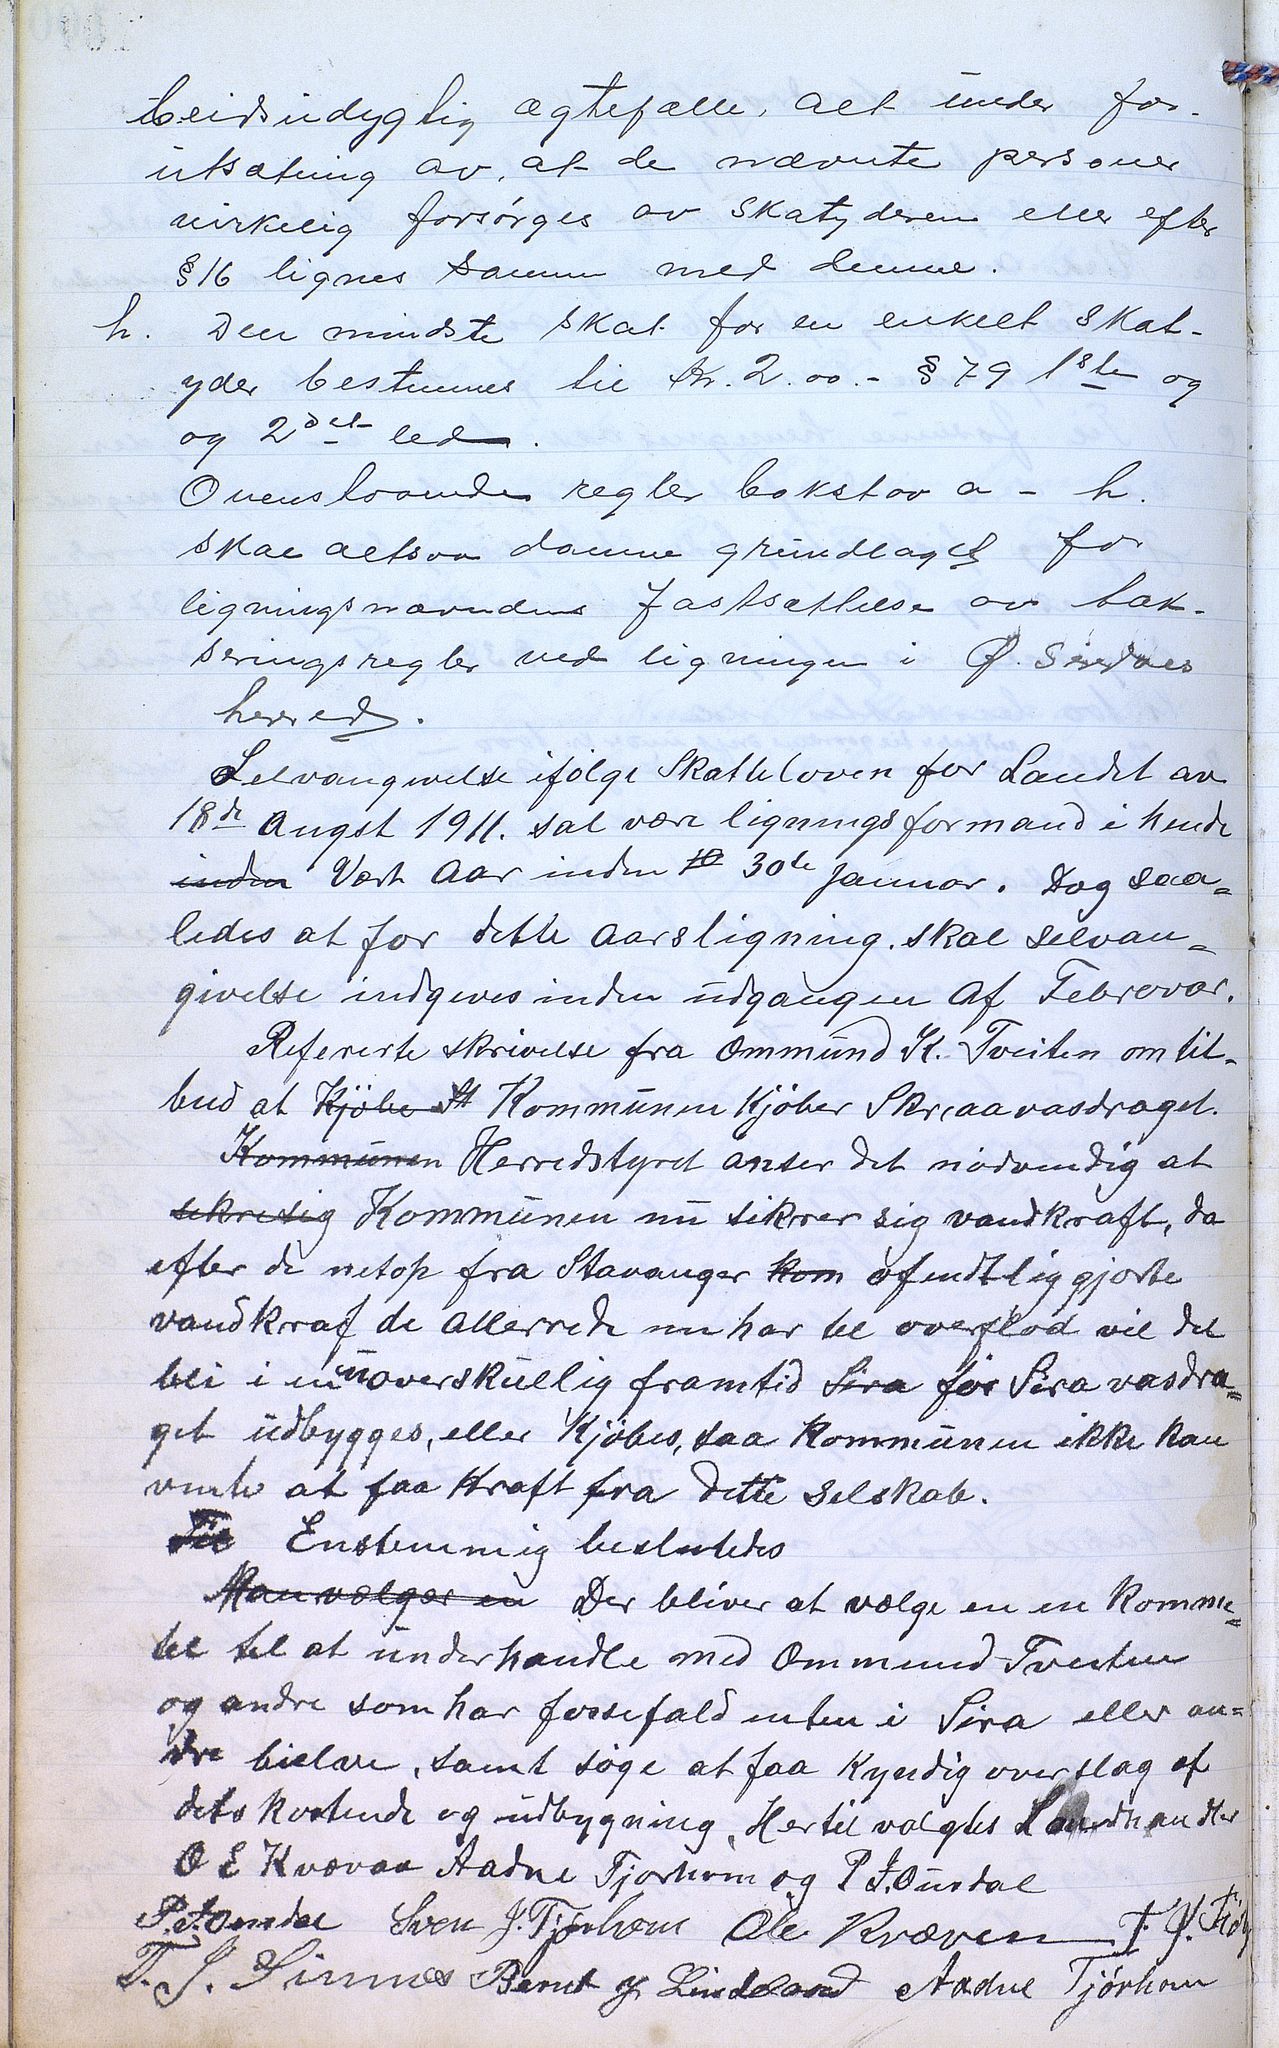 beidsudygtig ægtefælle, alt under for-
utsætning av, at de nævnte personer
virkelig forsørges av skatyderen eller efter
§ 16 lignes samm med denne.
h. Den mindste skat for en enkelt skat-
yder bestemmes til Kr. 2.00.- § 79 1ste og
og 2det led.
Ovenstaaende regler bokstav a - h.
skal altsaa danne grundlaget for
ligningsnævndens fastsættelse av tak-
seringsregler ved ligningen i Ø. Sirdales
herred.
Selvangivelse ifølge Skatteloven for Landet av
18de Augst 1911. sal være ligningsformand i hende
inden Vært Aar inden 10 30te Januar. Dog saa=
ledes at for dette Aars ligning. skal selvan=
givelse indgeves inden udgangen Af Februar.
Refererte skrivelse fra Ommund K. Tveiten om til-
bud at Kjöbe St Kommunen Kjöber Skreaavasdraget.
Kommunen Herredstyret anser det nödvendig at
sikre sig Kommunen nu sikrer sig vandkraft, da
efter de netop fra Stavanger kom ofendtliggjorte
vandkraf de Allerrede nu har til overflod vil det
bli i en uoverskuellig framtid Sira før Sira vasdra=
get udbygges, eller Kjöbes, saa Kommunen ikke kan
vente at faa Kraft fra dette selskab.
Til Enstemmig besluttedes
Man vælger en Der bliver at vælge en en Komme=
te til at underhandle med Ommund Tveiten
og andre som har fossefald enten i Sira eller an=
dre bielve, samt söge at faa Kyndig overslag af
dets kostende og udbygning, Hertil valgtes Landhandler
O E Kvævaa Aadne Tjorhom og P J. Ousdal
P. J. Ousdal Sven J. Tjørhom Ole Kræven T. J. Fid
T. J. Sinnes Bernt J Lindeland Aadne Tjórhom